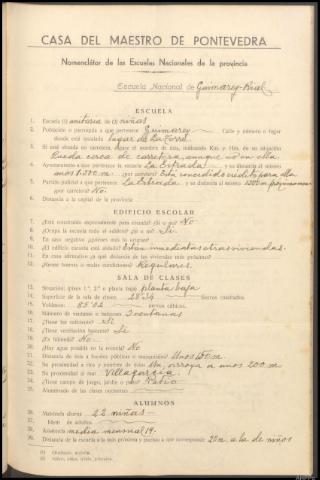 CASA DEL MAESTRO DE PONTEVEDRA
Nomenclátor de las Escuelas Nacionales de la provincia
Escuela Nacional de Guimarey-Rial
ESCUELA
1. Escuela (1) unitaria de (2) niñas
2. Población o parroquia a que pertenece Guimarey Calle y número o lugar
donde está instalada lugar de La Torre
3. Si está situada en carretera, dígase el nombre de ésta, indicando Km. y Hm. de su situación
Queda cerca de carretera, aunque no en ella
4. Ayuntamiento a que pertenece La Estrada y su distancia al mismo
unos 1.500 m. Está concedido crédito para ella
5. Partido judicial a que pertenece La Estrada y su distancia al mismo 1500 m
No
6. Distancia a la capital de la provincia
EDIFICIO ESCOLAR
7. ¿Está construido expresamente para escuela? ¿Sí o no? No
8. ¿Ocupa la escuela todo el edificio? ¿Sí o no? Si
9. En caso negativo ¿quiénes más lo ocupan?
10. ¿El edificio escuela está aislado? Están inmediatas otras viviendas.
11. En caso afirmativo ¿a qué distancia de las viviendas más próximas?
12. ¿Reúne buenas o malas condiciones? Regulares.
SALA DE CLASES
13. Situación: ¿pisos 1.º, 2.º o planta baja? planta baja
14. Superficie de la sala de clases 28'34 metros cuadrados.
15. Volumen: 85'02 metros cúbicos.
16. Número de ventanas o balcones 3 ventanas
17. ¿Tiene luz suficiente? Si
18. ¿Tiene ventilación bastante? Si
19. ¿Es húmeda? No
20. ¿Hay agua potable en la escuela? No
21. Distancia de ésta a fuentes públicas o manantiales? Unos 150 m.
22. Su proximidad a ríos y nombre de éstos Un arroyo a unos 200 m
23. Su proximidad al mar: Villagarcía
24. ¿Tiene campo de juego, jardín o patio? Patio
25. Alumbrado de las clases nocturnas
ALUMNOS
26. Matrícula diurna 22 niñas
27. Idem de adultos
28. Asistencia media mensual 19.
29. Distancia de la escuela a la más próxima y paraje a que corresponde 20 m. a la de niños
(1) Graduada, unitaria.
(2) Niños, niñas, mixta, párvulos.